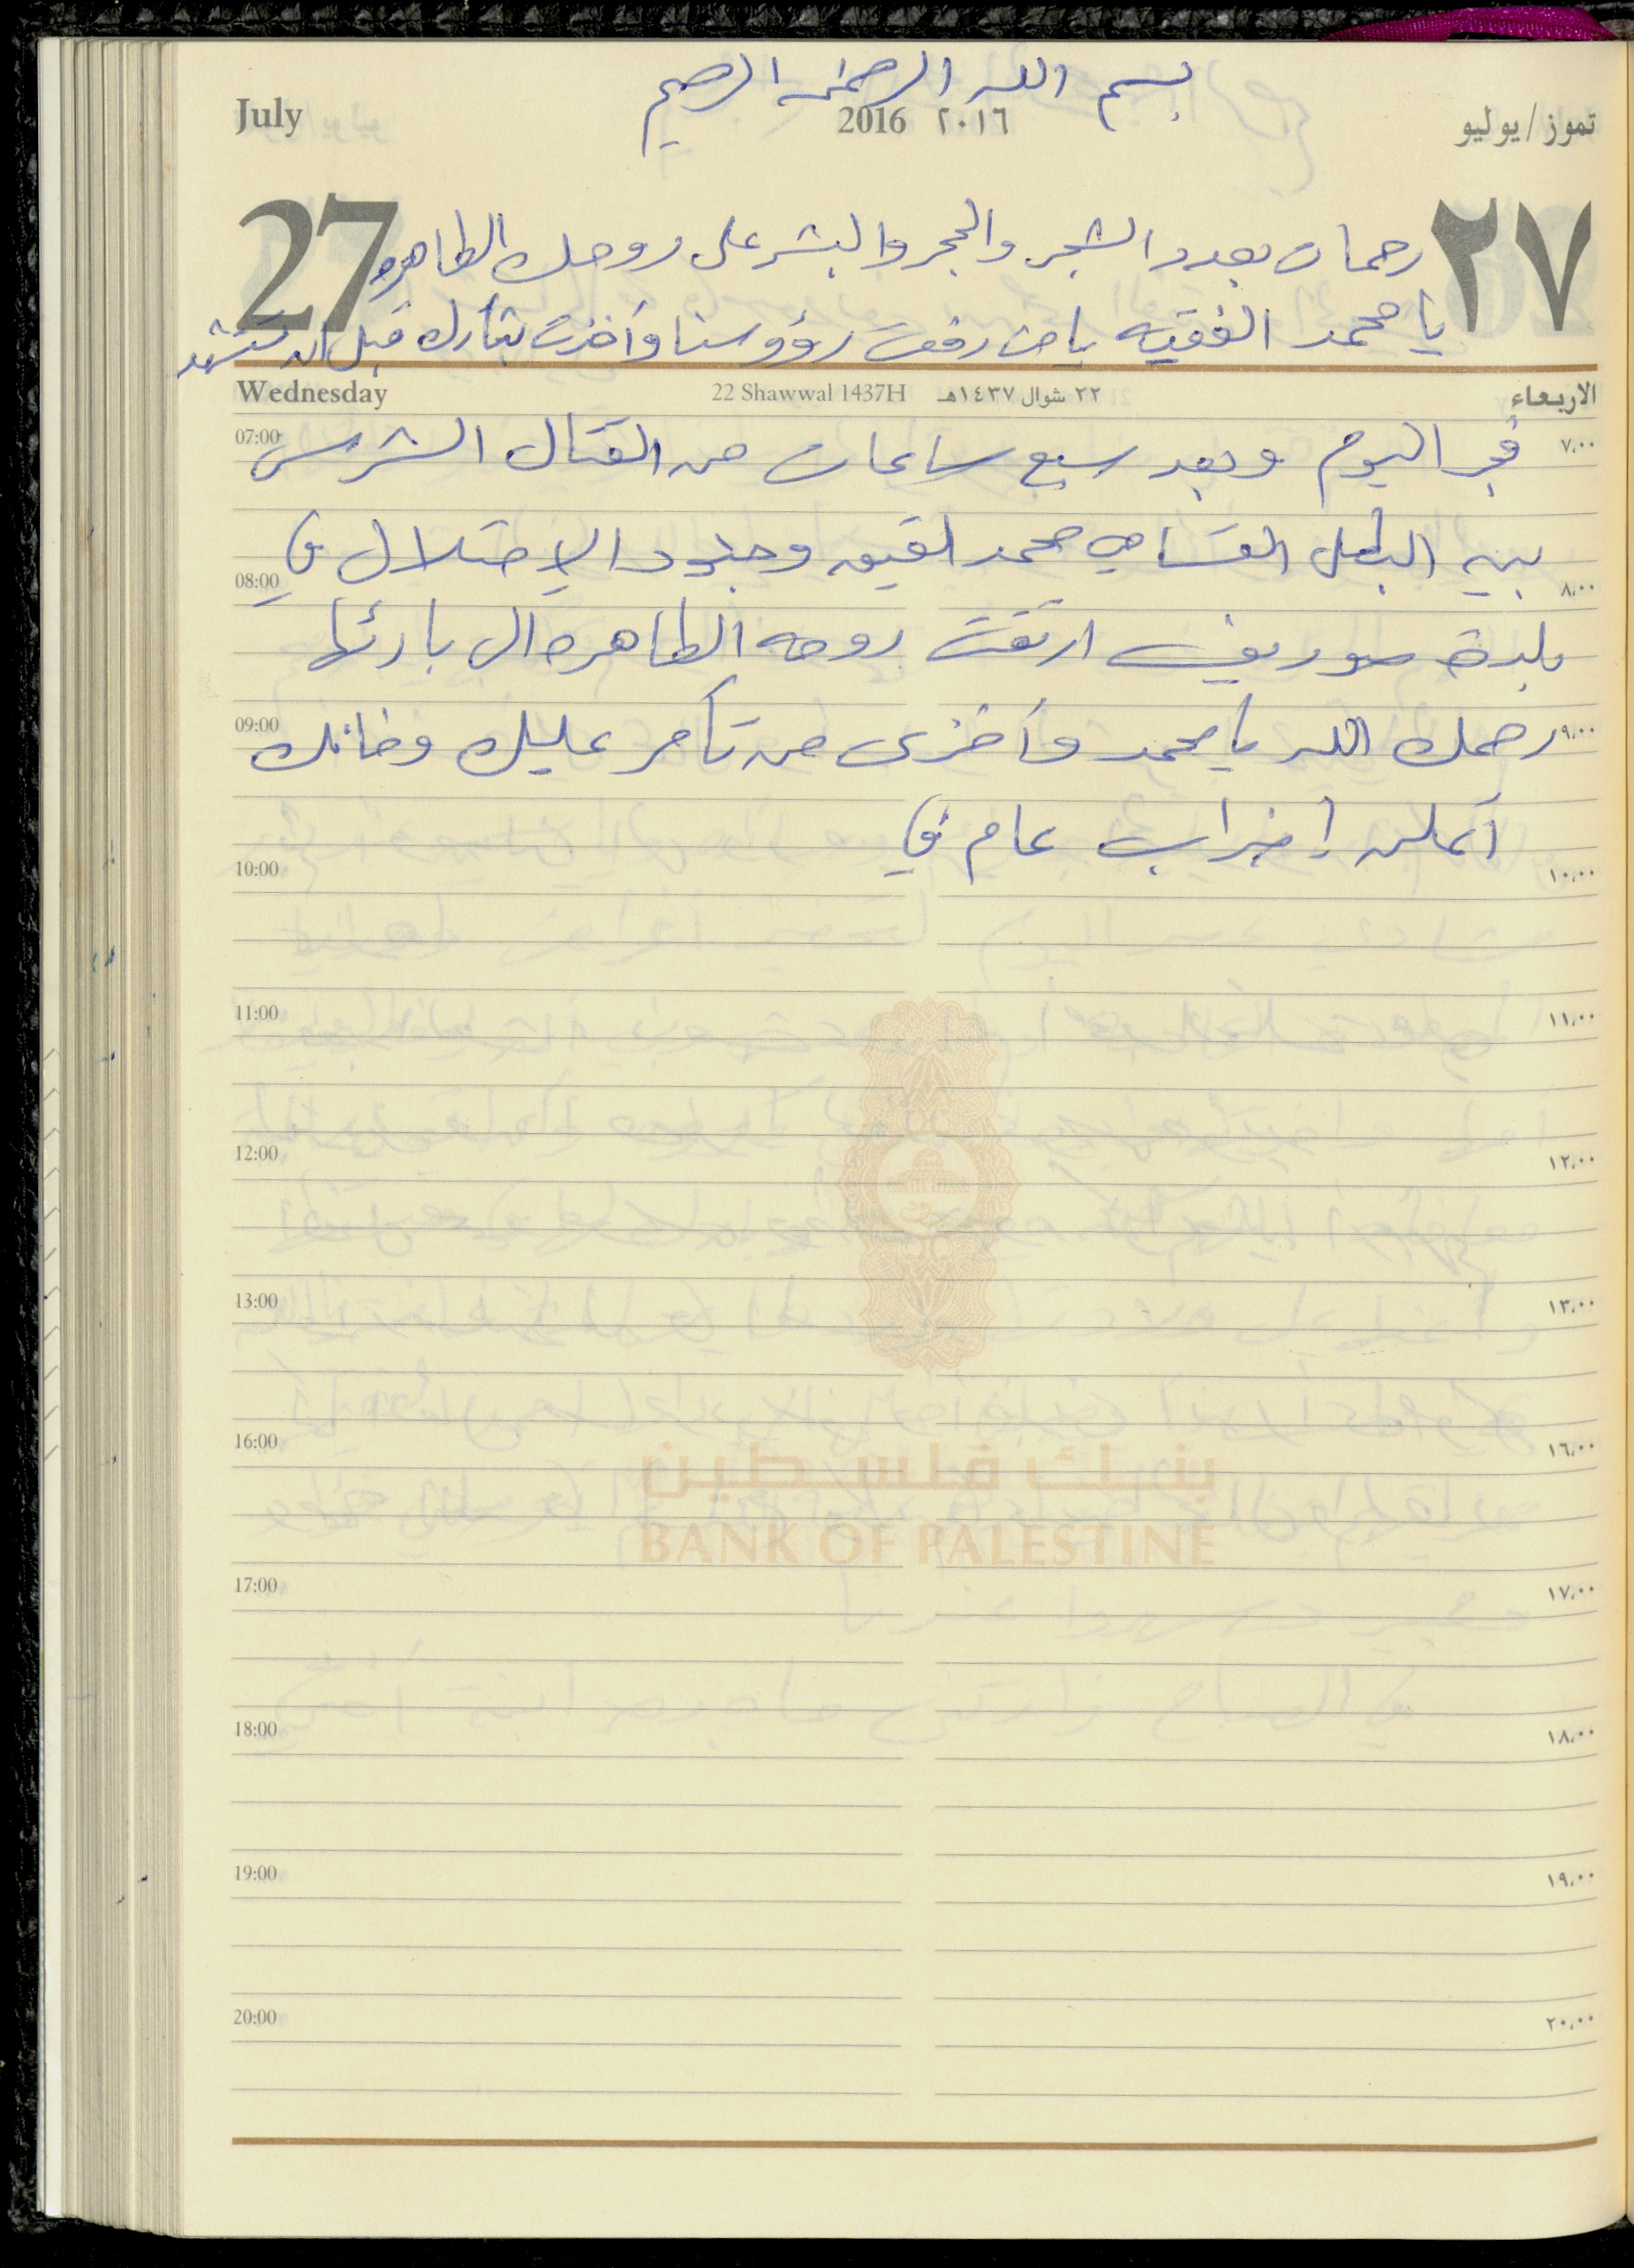 بسم الله الرحمن الرحيم
July 2016 ٢٠١٦ تموز/يوليو
27 ٢٧
رحمات بعدد الشجر والحجر والبشر على روحك الطاهره
يا محمد الفقيه يا من رفعت رؤوسنا وأخذت بثأرك قبل ان تستشهد
Wednesday 22 Shawwal 1437H ٢٢ شوال ١٤٣٧هـ الاربعاء
07:00 فجر اليوم وبعد سبع ساعات من القتال الشرس ٧،٠٠
بين البطل القسامي محمد لفقيه وجنود الإحتلال في
08:00 ٨،٠٠
بلدة صوريف ارتقت روحه الطاهره الى بارئها
09:00 رحمك الله يا محمد وأخزى من تآمر عليك وخانك ٩،٠٠
أعلن إضراب عام في
10:00 ١٠،٠٠
11:00 ١١،٠٠
12:00 ١٢،٠٠
13:00 ١٣،٠٠
16:00 ١٦،٠٠
بنك فلسطين
BANK OF PALESTINE
17:00 ١٧،٠٠
18:00 ١٨،٠٠
19:00 ١٩،٠٠
20:00 ٢٠،٠٠